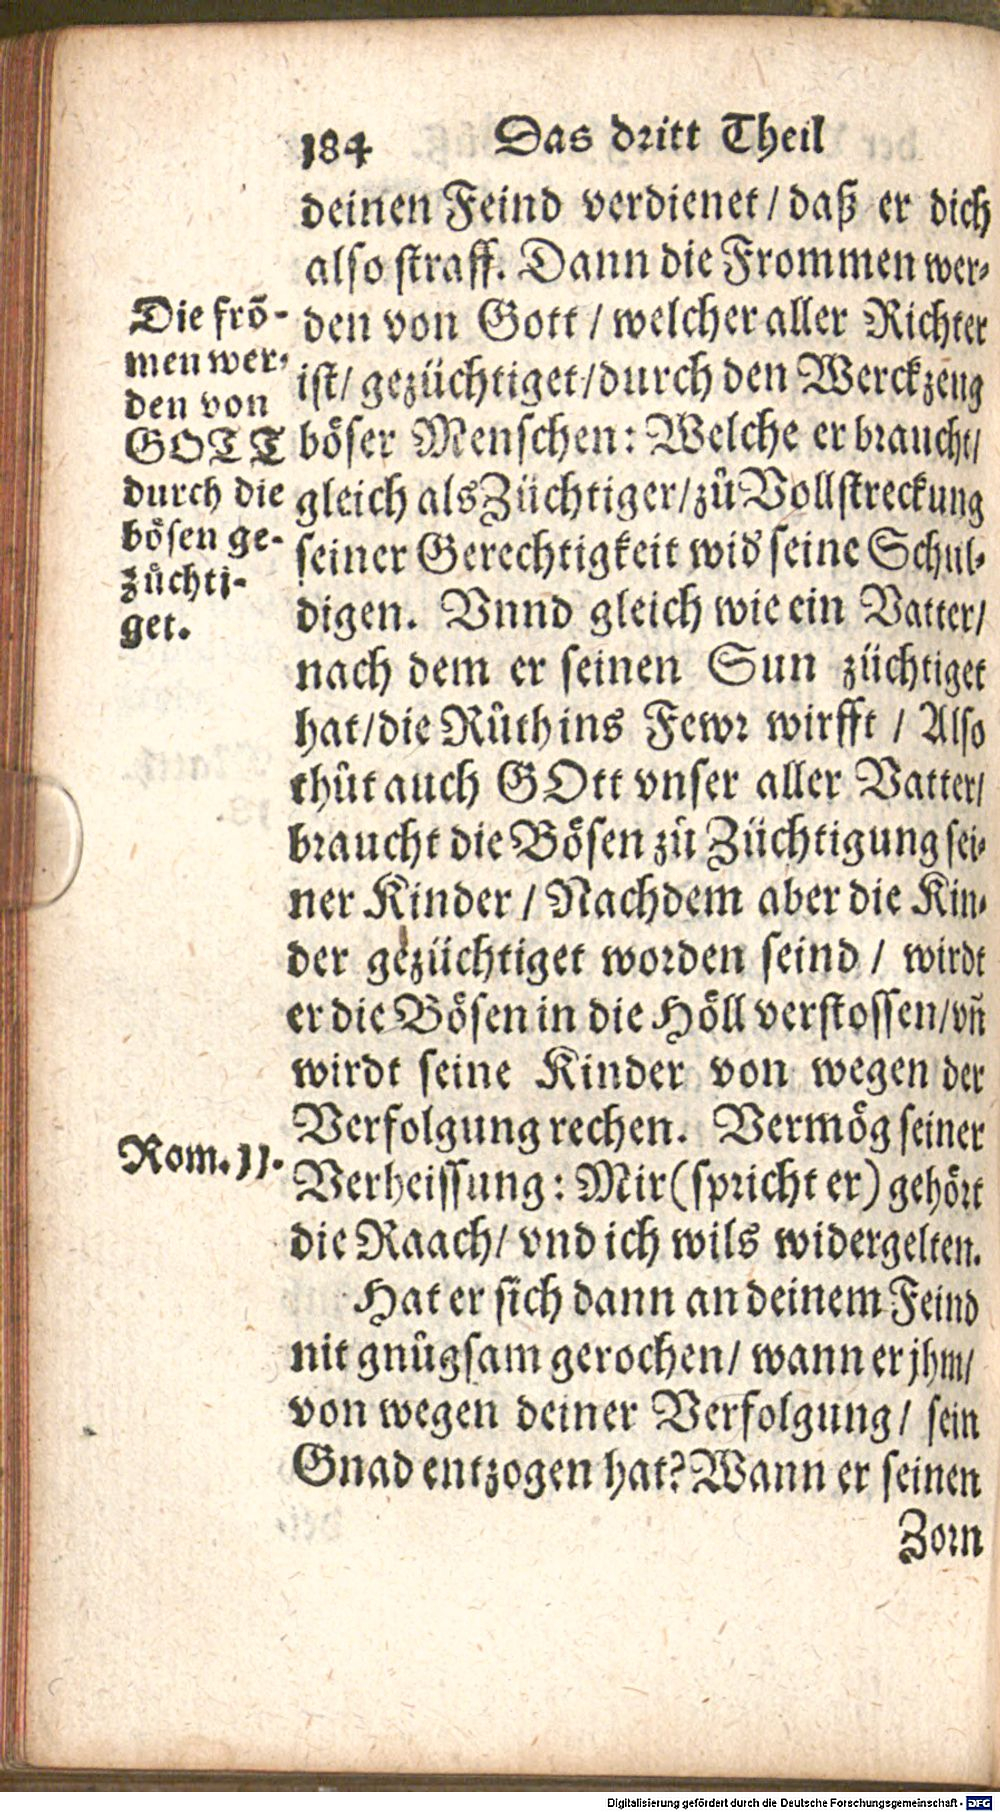 184 Das dritt Theil
deinen Feind verdienet/ daß er dich
also straff. Dann die Frommen wer-
den von Gott / welcher aller Richter
ist/ gezüchtiget/durch den Werckzeug
böser Menschen: Welche er braucht/
gleich als Züchtiger/zů Vollstreckung
seiner Gerechtigkeit wid' seine Schul-
digen. Vnnd gleich wie ein Vatter/
nach dem er seinen Sun züchtiget
hat/die Růth ins Fewr wirfft / Also
thůt auch GOtt vnser aller Vatter/
braucht die Bösen zů Züchtigung sei-
ner Kinder / Nachdem aber die Kin-
der gezüchtiget worden seind / wirdt
er die Bösen in die Höll verstossen/vñ
wirdt seine Kinder von wegen der
Verfolgung rechen. Vermög seiner
Verheissung: Mir (spricht er) gehört
die Raach/ vnd ich wils widergelten.
Hat er sich dann an deinem Feind
nit gnůgsam gerochen/ wann er jhm/
von wegen deiner Verfolgung/ sein
Gnad entzogen hat? Wann er seinen
Zorn
Die frö-
men wer-
den von
GOTT
durch die
bösen ge-
züchti-
get.
Rom. 11.
Digitalisierung gefördert durch die Deutsche Forschungsgemeinschaft - DFG